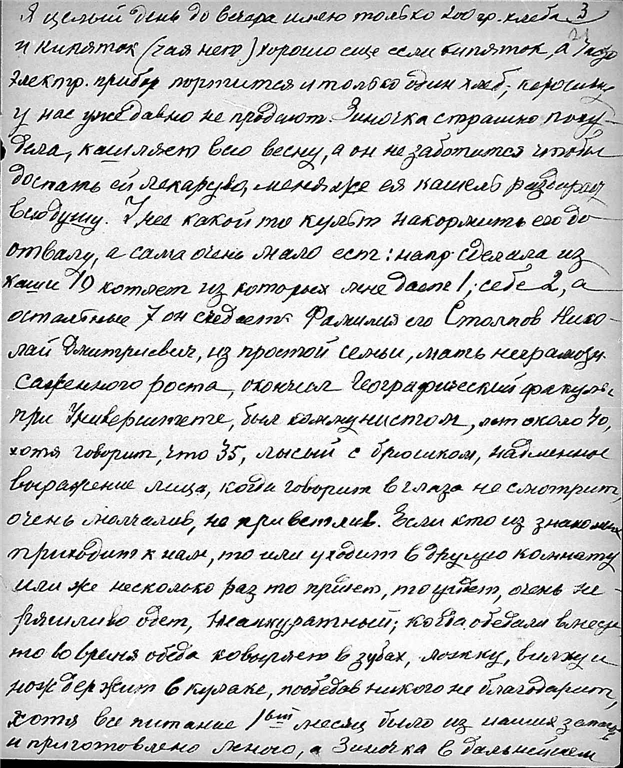 Я целый день до вечера имею только 200 гр. хлеба 3
и кипяток (чая нет) хорошо еще если кипяток, а
электр. прибор портится и только один хлеб; керосину
у нас уже давно не продают. Зиночка страшно поху-
дела, кашляет всю весну, а он не заботится чтобы
достать ей лекарство, меня же ея кашель раздирает
всю душу. У нее какой то культ накормить его до
отвалу, а сама очень мало ест: напр. сделала из
каши 10 котлет из которых мне дает 1, себе 2, а
остальные 7 он съедает. Фамилия его Столпов Нико-
лай Дмитриевич, из простой семьи, мать неграмотн.
саженного роста, окончил Географический факульт.
при Университете, был коммунистом, лет около 40,
хотя говорит, что 35, лысый с брюшком, надменное
выражение лица, когда говорит в глаза не смотрит,
очень молчалив, не приветлив. Если кто из знакомых
приходит к нам, то или уходит в другую комнату
или же несколько раз то придет, то уйдет, очень не-
ряшливо одет, неаккуратный; когда обедали вместе,
то во время обеда ковыряет в зубах, ложку, вилку и
нож держит в кулаке, пообедав никого не благодарит,
хотя все питание 1ый месяц было из наших запасов
и приготовлено мною, а Зиночка в дальнейшем